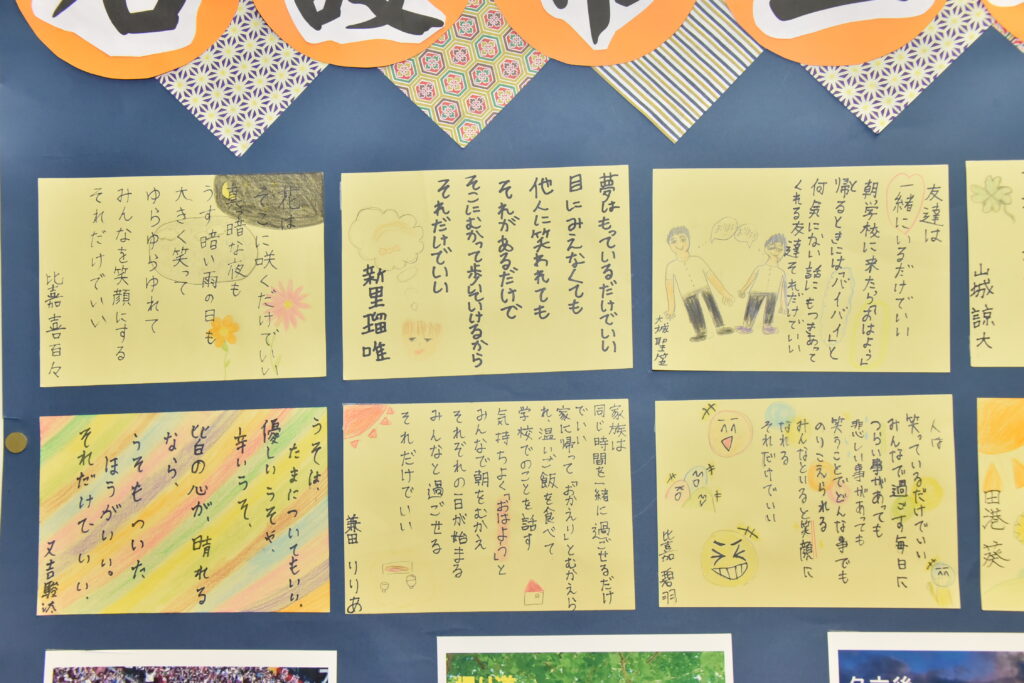 友達は
一緒にいるだけでいい
朝学校に来たら「おはよう」
と
帰るときには「バイバイ」と
何気ない話にもつきあって
くれる友達それだけでいい
大城聖
夢はもっているだけでいい
目にみえなくても
他人に笑われても
それがあるだけで
そこにむかって歩いていけるから
それだけでいい
新里瑠唯
花は
そこに咲くだけでいい
真暗な夜も
うす暗い雨の日も
大きく笑って
ゆらゆらゆれて
みんなを笑顔にする
それだけでいい
比嘉喜百々
山城諒大
人は
笑っているだけでいい
みんなで過ごす毎日に
つらい事があっても
悲しい事があっても
笑うことでどんな事でも
のりこえられる
みんなといると笑顔に
なれる
それだけでいい
比嘉碧羽
家族は
同じ時間を一緒に過ごせるだけ
でいい
家に帰って「おかえり」とむかえら
れ、温かいご飯を食べて
学校でのことを話す
気持ちよく「おはよう」と
みんなで朝をむかえ
それぞれの一日が始まる
みんなと過ごせる
それだけでいい
兼田りりあ
うそは、
たまについてもいい。
優しいうそや、
辛いうそ、
皆の心が、晴れる
なら、
うそも ついた
ほうがいい。
それだけで いい。
又吉駿汰
田港葵